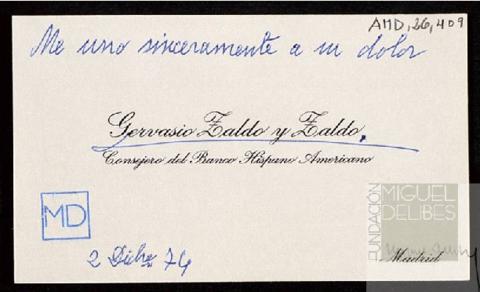 AMD,26,409
Me uno sinceramente a su dolor
Gervasio Zaldo y Zaldo,
Consejero del Banco Hispano Americano
MD
2 Dicbre 74
FUNDACIÓN
MIGUEL
DELIBES
Madrid